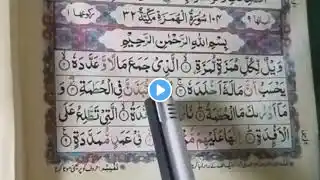 اٰیاتها ۹ ۱۰۴ سُوْرَةُ الْهُمَزَةِ مَكِّيَّةٌ ۳۲ رکوعها ۱
بِسْمِ اللّٰهِ الرَّحْمٰنِ الرَّحِيْمِ
وَيْلٌ لِّكُلِّ هُمَزَةٍ لُّمَزَةِ ۙ ۱ الَّذِيْ جَمَعَ مَالًا وَّعَدَّدَهٗ ۙ ۲
يَحْسَبُ اَنَّ مَالَهٗٓ اَخْلَدَهٗ ۚ ۳ فِي الْحُطَمَةِ ۖ ۴ وَ
مَآ اَدْرٰىكَ مَا الْحُطَمَةُ ۗ ۵ نَارُ الَّتِيْ تَطَّلِعُ عَلَى
الْاَفْـِٕدَةِ ۗ ۷ اِنَّهَا عَلَيْهِمْ فِيْ عَمَدٍ مُّمَدَّدَةٍ ۹